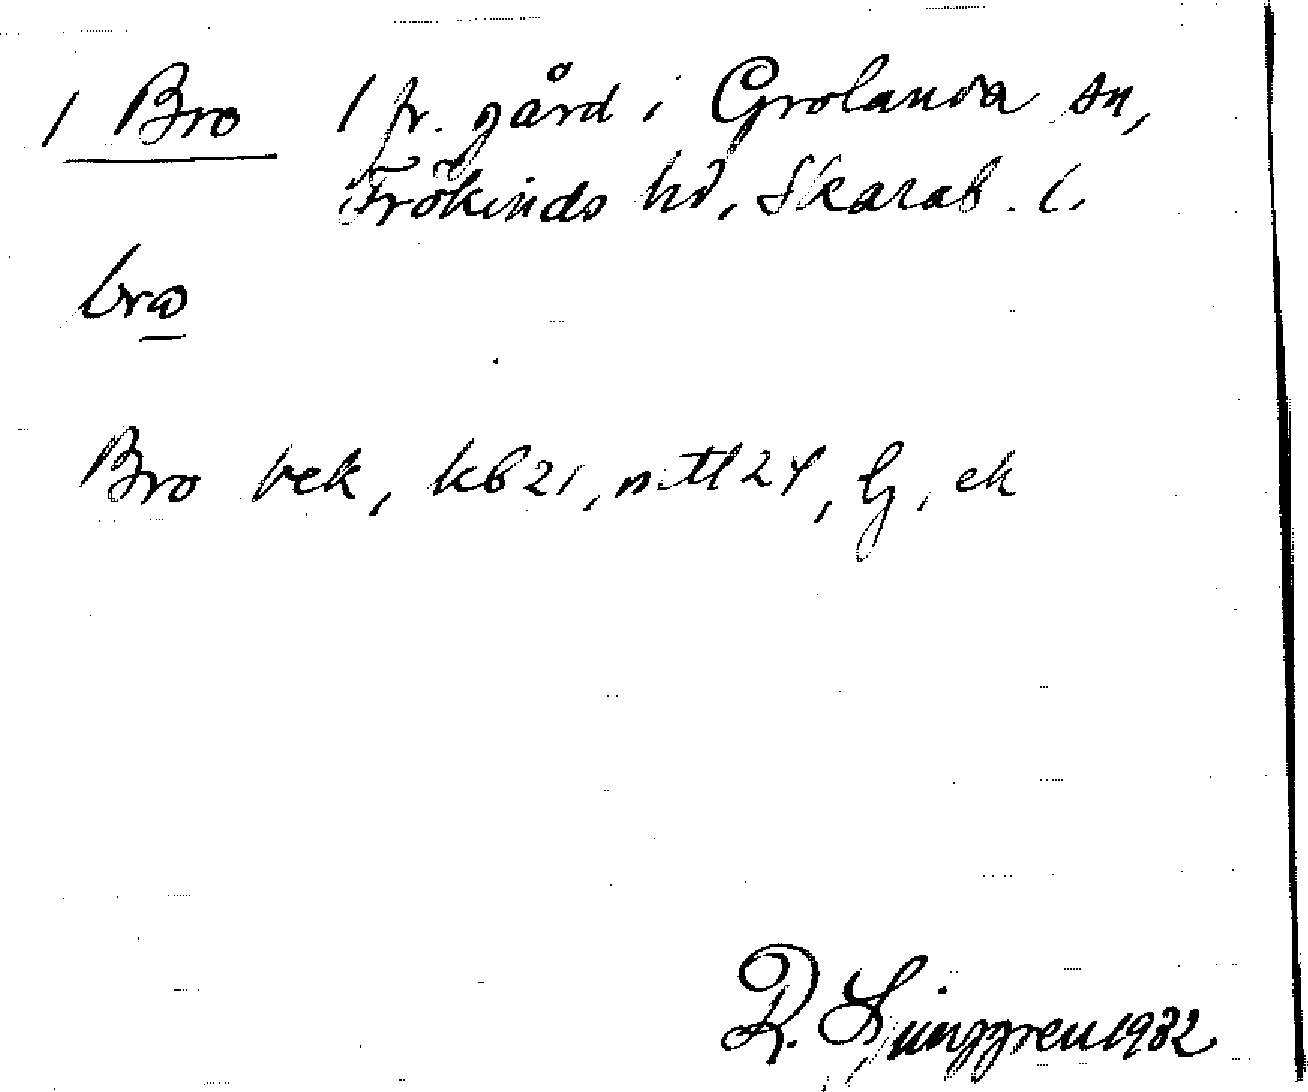 1 Bro 1 fr. gård i Grolanda sn,
Frökinds hd, Skarab. l.
bro
Bro bek, kb 21, ntl 24, lj, ek
R. Ljunggren 1932